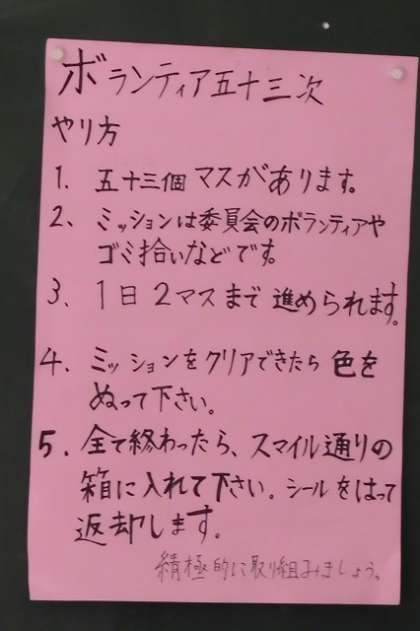 ボランティア五十三次
やり方
1. 五十三個マスがあります。
2、ミッションは委員会のボランティアや
ゴミ拾いなどです。
3、1日2マスまで進められます。
4、ミッションをクリアできたら色を
ぬって下さい。
5. 全て終わったら、スマイル通りの
箱に入れて下さい。シールをはって
返却します。
積極的に取り組みましょう。